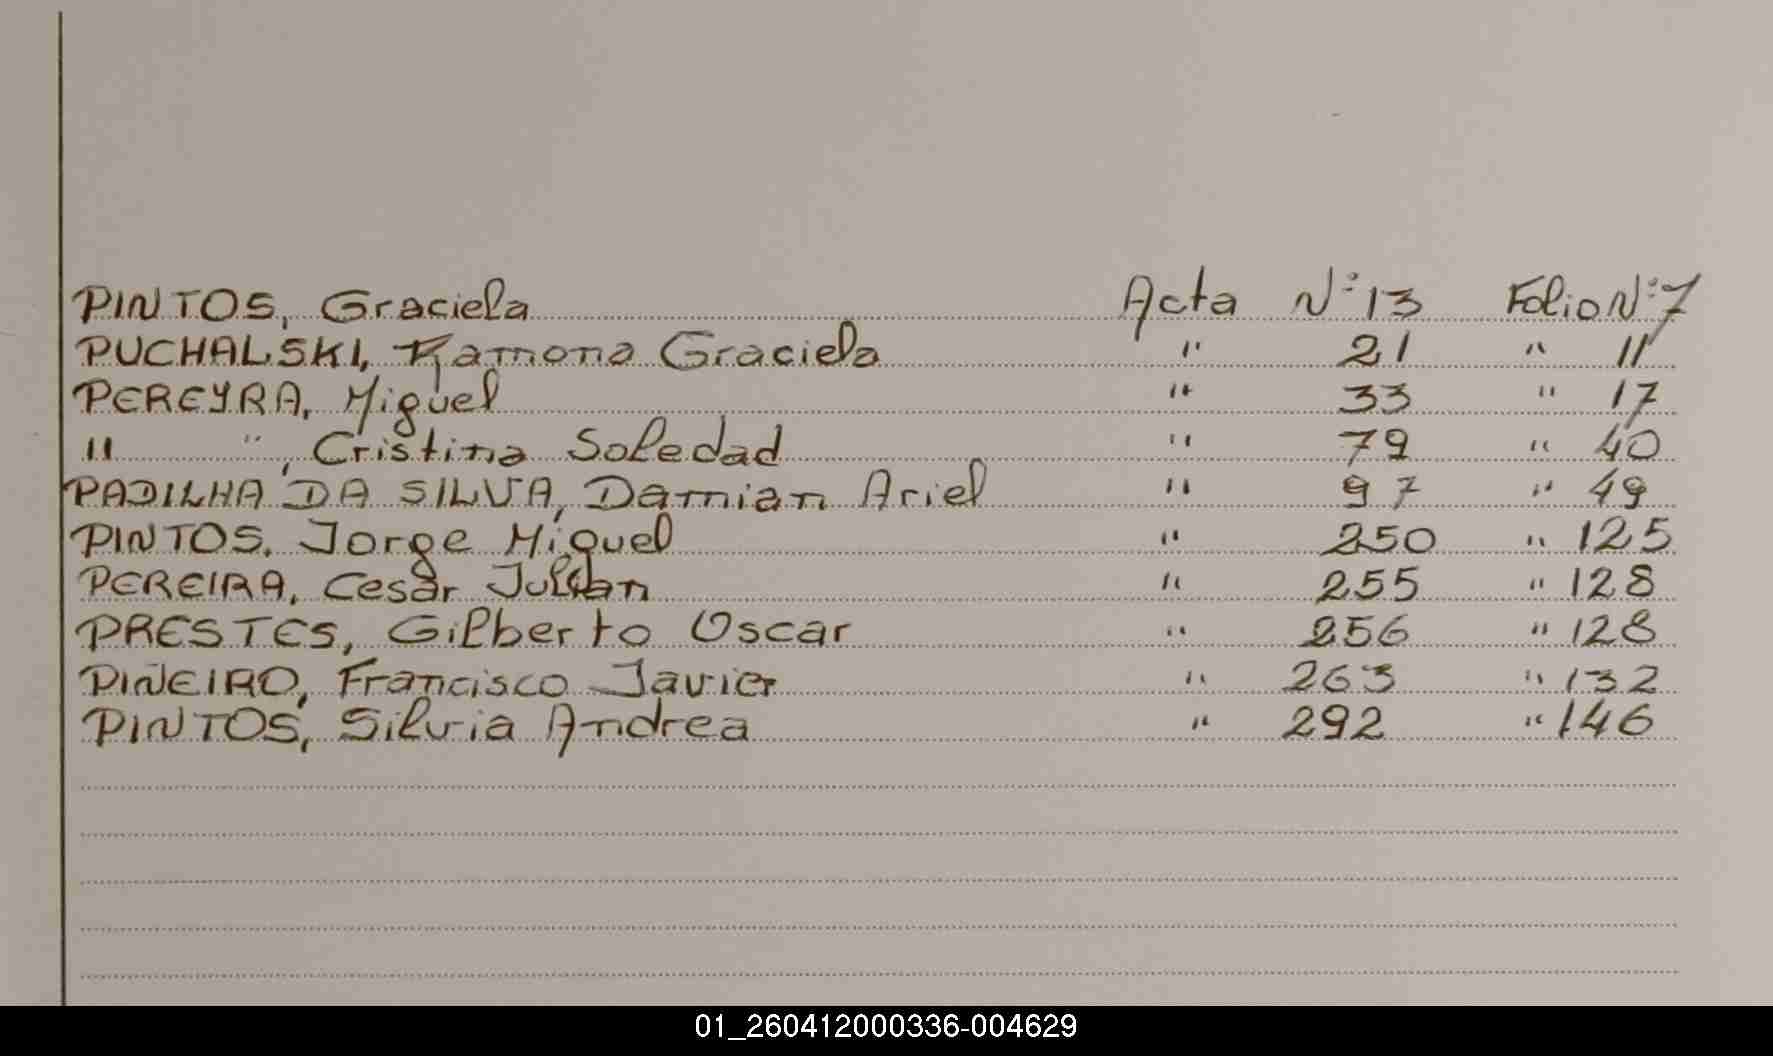 PINTOS, Graciela Acta Nº 13 Folio Nº 7
PUCHALSKI, Ramona Graciela " 21 " 11
PEREYRA, Miguel " 33 " 17
" ", Cristina Soledad " 79 " 40
PADILHA DA SILVA, Damian Ariel " 97 " 49
PINTOS, Jorge Miguel " 250 " 125
PEREIRA, Cesar Julian " 255 " 128
PRESTES, Gilberto Oscar " 256 " 128
PIÑEIRO, Francisco Javier " 263 " 132
PINTOS, Silvia Andrea " 292 " 146
01_260412000336-004629